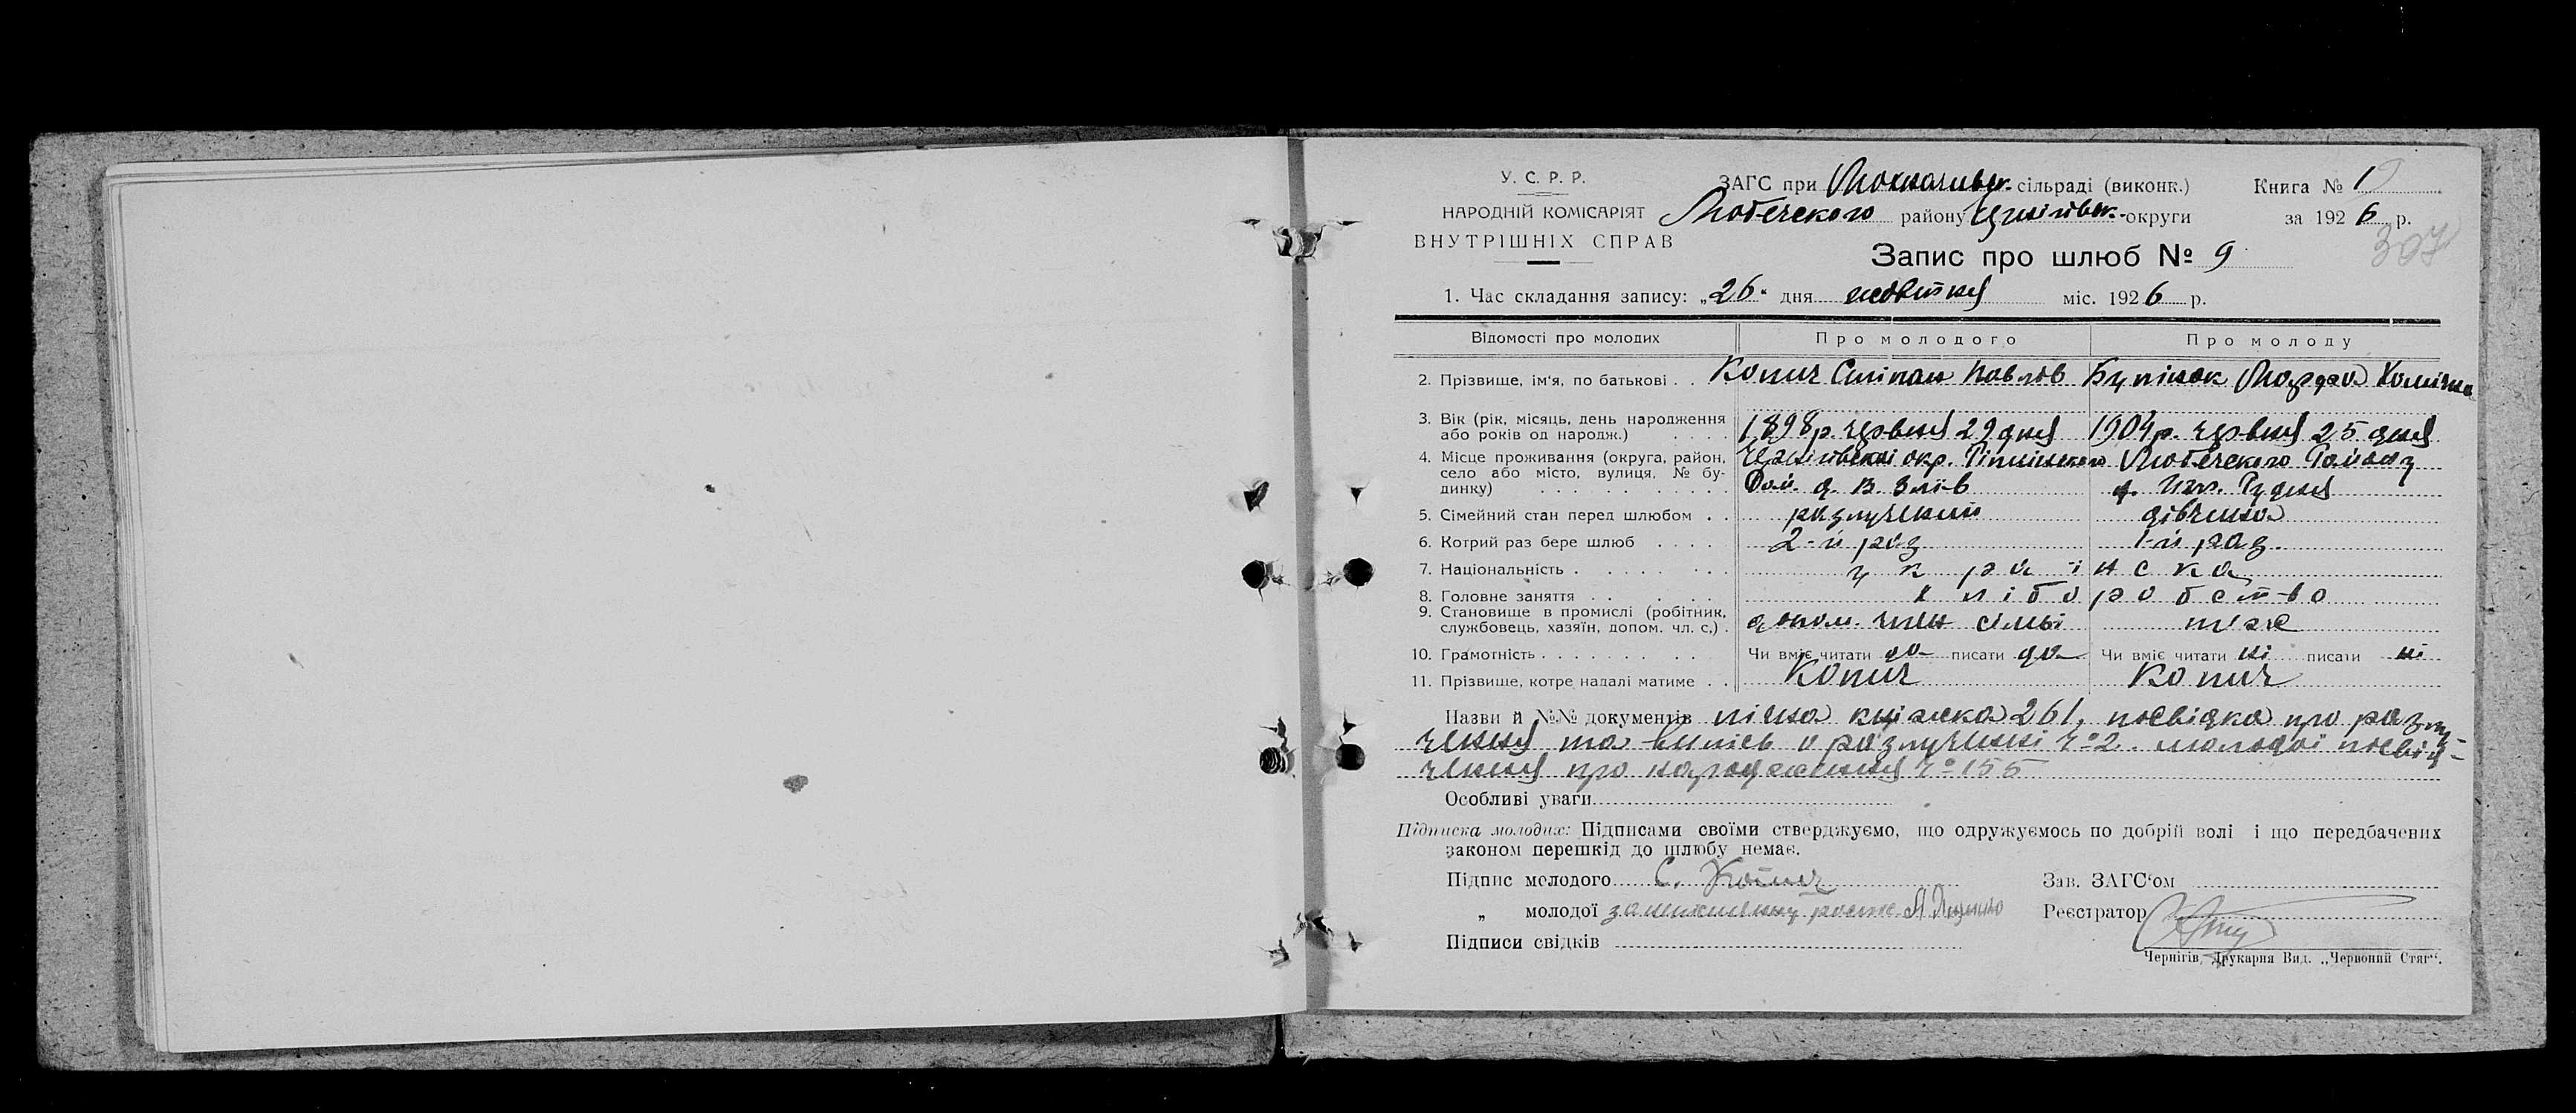 У. С. Р. Р.
НАРОДНІЙ КОМІСАРІЯТ
ВНУТРІШНІХ СПРАВ
ЗАГС при сільраді (виконк.)
Любечского району округи
Книга № 1
за 1926 р.
307
Запис про шлюб № 9
1. Час складання запису: „26" дня жовтня міс. 1926 р.
Відомості про молодих Про молодого Про молоду
2. Прізвище, ім'я, по батькові . . Копич Степан Павлов
3. Вік (рік, місяць, день народження
або років од народж.) . . . . 1898 р. червня 29 дня 1904 р. червня 25 дня
4. Місце проживання (округа, район,
село або місто, вулиця, № будинку) . . . Чернігівскої окр. Ріпкинского Любечского Району
Рай. д. В. Зліїв Рудня
5. Сімейний стан перед шлюбом . . разлучений дівчина
6. Котрий раз бере шлюб . . . . 2-й раз 1-й раз
7. Національність . . . . . . українска
8. Головне заняття . . . . . . хліборобство
9. Становище в промислі (робітник,
службовець, хазяїн, допом. чл. с.) . допом. член сімьї теж
10. Грамотність . . . . . . . . Чи вміє читати да писати да Чи вміє читати ні писати ні
11. Прізвище, котре надалі матиме . . Копич Копич
Назви й №№ документів книжка 261, посвідка про разлу-
чення та випісь о разлученні №2. молодої посвід-
чення про народження № 155
Особливі уваги
Підписка молодих: Підписами своїми стверджуємо, що одружуємось по добрій волі і що передбачених
законом перешкід до шлюбу немає.
Підпис молодого С. Копич
„ молодої
Підписи свідків
Зав. ЗАГС'ом
Реєстратор
Чернігів, Друкарня Вид. „Червоний Стяг".